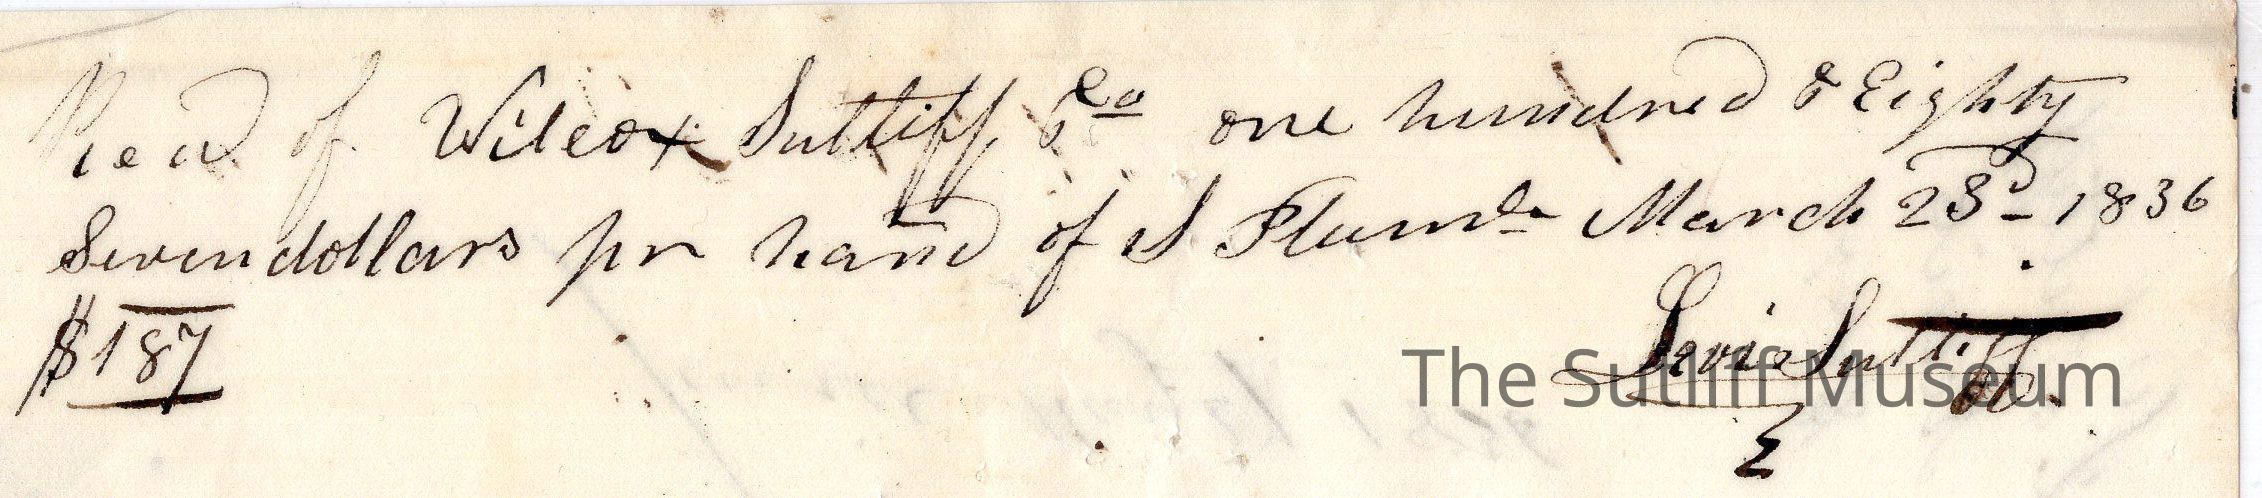 Recd of Wilcox Sutliff & Co one hundred & Eighty
Seven dollars pr hand of S Plum March 23d 1836
$187
Levi Sutliff
The Sutliff Museum